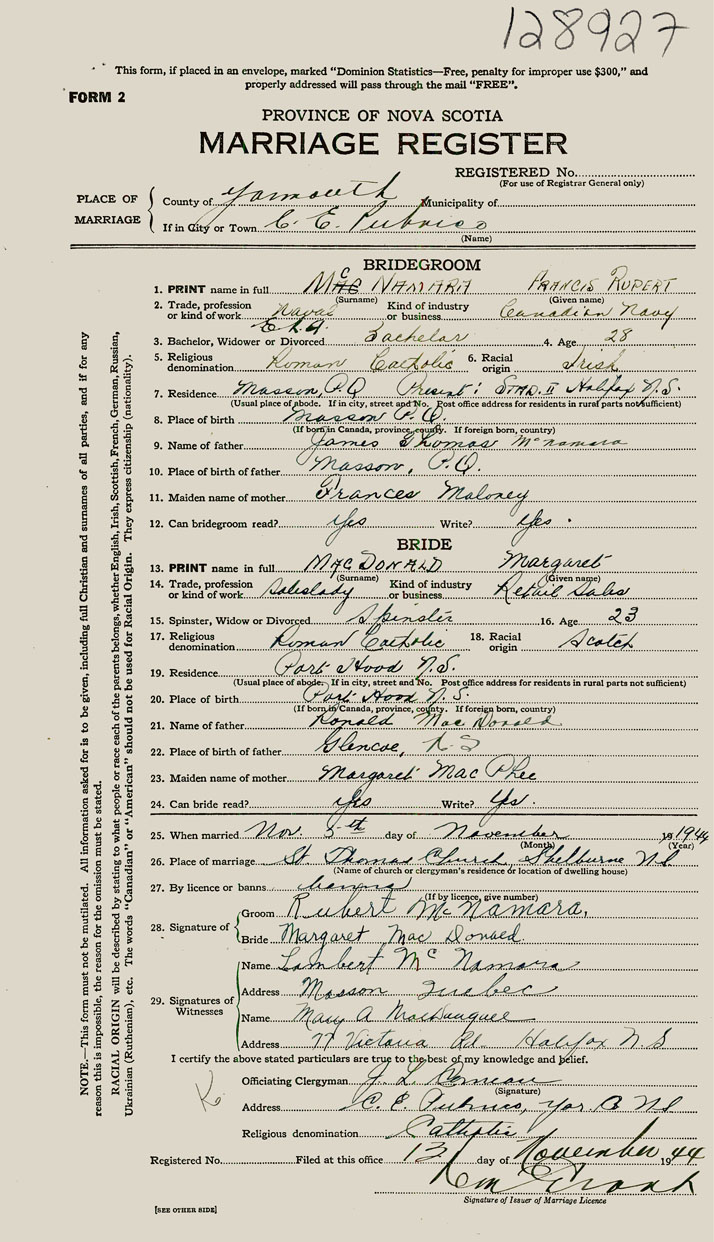 128927
This form, if placed in an envelope, marked "Dominion Statistics—Free, penalty for improper use $300," and
properly addressed will pass through the mail "FREE".
FORM 2
PROVINCE OF NOVA SCOTIA
MARRIAGE REGISTER
REGISTERED No.
(For use of Registrar General only)
PLACE OF MARRIAGE
County of Yarmouth Municipality of
If in City or Town C. E. Pubnico
(Name)
BRIDEGROOM
1. PRINT name in full Mc NAMARA FRANCIS RUPERT
(Surname) (Given name)
2. Trade, profession or kind of work Naval E.R.A. Kind of industry or business Canadian Navy
3. Bachelor, Widower or Divorced Bachelor 4. Age 28
5. Religious denomination Roman Catholic 6. Racial origin Irish
7. Residence Masson, P.Q. Present: STAD. II Halifax N.S.
(Usual place of abode. If in city, street and No. Post office address for residents in rural parts not sufficient)
8. Place of birth Masson P.Q.
(If born in Canada, province, county. If foreign born, country)
9. Name of father James Thomas McNamara
10. Place of birth of father Masson, P.Q.
11. Maiden name of mother Frances Maloney
12. Can bridegroom read? yes Write? yes.
BRIDE
13. PRINT name in full MACDONALD Margaret
(Surname) (Given name)
14. Trade, profession or kind of work Saleslady Kind of industry or business Retail Sales
15. Spinster, Widow or Divorced Spinster 16. Age 23
17. Religious denomination Roman Catholic 18. Racial origin Scotch
19. Residence Port Hood N.S.
(Usual place of abode. If in city, street and No. Post office address for residents in rural parts not sufficient)
20. Place of birth Port Hood N.S.
(If born in Canada, province, county. If foreign born, country)
21. Name of father Ronald MacDonald
22. Place of birth of father Glencoe, N.S
23. Maiden name of mother Margaret MacPhee
24. Can bride read? yes Write? Yes.
25. When married Nov. 5th day of November 1944
(Month) (Year)
26. Place of marriage St Thomas Church, Shelburne NS
(Name of church or clergyman's residence or location of dwelling house)
27. By licence or banns
(If by licence, give number)
28. Signature of
Groom Rubert McNamara,
Bride Margaret MacDonald.
29. Signatures of Witnesses
Name Lambert McNamara
Address Masson Quebec
Name Mary A
Address 77 Victoria Rd. Halifax N S
I certify the above stated particulars are true to the best of my knowledge and belief.
Officiating Clergyman J. L. Comeau
(Signature)
Address C. E Pubnico, Yar. Co NS
Religious denomination Catholic
Registered No. Filed at this office 13 day of November 1944
Signature of Issuer of Marriage Licence
[SEE OTHER SIDE]
NOTE.—This form must not be mutilated. All information asked for is to be given, including full Christian and surnames of all parties, and if for any
reason this is impossible, the reason for the omission must be stated.
RACIAL ORIGIN will be described by stating to what people or race each of the parents belongs, whether English, Irish, Scottish, French, German, Russian,
Ukrainian (Ruthenian), etc. The words "Canadian" or "American" should not be used for Racial Origin. They express citizenship (nationality).